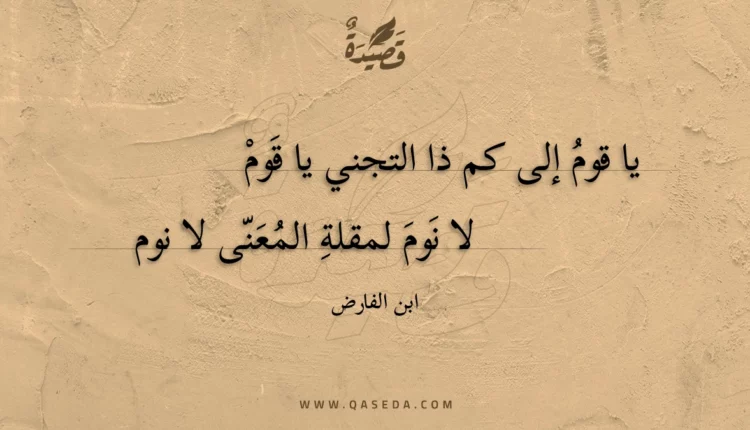 قَصِيدَةٌ
يا قومُ إلى كم ذا التجني يا قَومْ
لا نَومَ لمقلةِ المُعَنّى لا نوم
ابن الفارض
WWW.QASEDA.COM